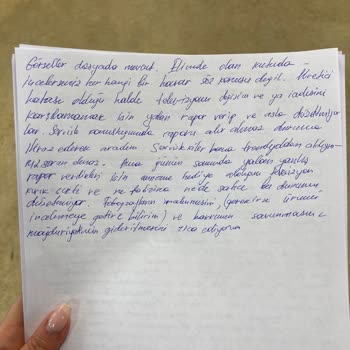 Görseller dosyada mevcut. Elimde olan kutuda
incelerseniz her hangi bir hasar söz konusu değil. Üretici
hatası olduğu halde televizyonu değişim ve ya iadesini
karşılamamak için yalan rapor verip ve asla düzeltmiyor
lar. Servis konuştuğumda raporu alır almaz durumu
itiraz ederek aradım. Servistekiler bana trendyoldan aldıysan
sorun olmaz. Ama günün sonunda yalan yanlış
rapor verdikleri için anneme hediye aldığım televizyon
kırık çıktı ve ne fabrika ne de satıcı bu durumu
düzeltmiyor. Fotoğrafların incelenmesini, (gerekirse ürünü
incelemeye getire bilirim) ve hakkımın savunmasını
mağduriyetimin giderilmesini rica ediyorum